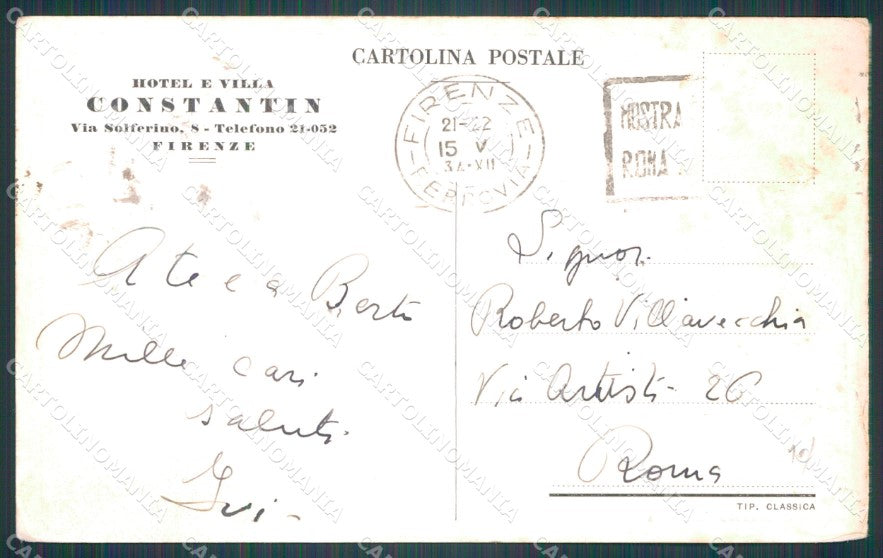 CARTOLINA POSTALE
HOTEL E VILLA
CONSTANTIN
Via Solferino, 8 - Telefono 21-052
FIRENZE
FIRENZE
21-22
15 V
34·XII
FERROVIA
MOSTRA
ROMA
A te e a Berto
Mille cari
saluti
Signor
Roberto Villavecchia
Via Artisti 26
Roma
TIP. CLASSICA
CARTOLINOMANIA